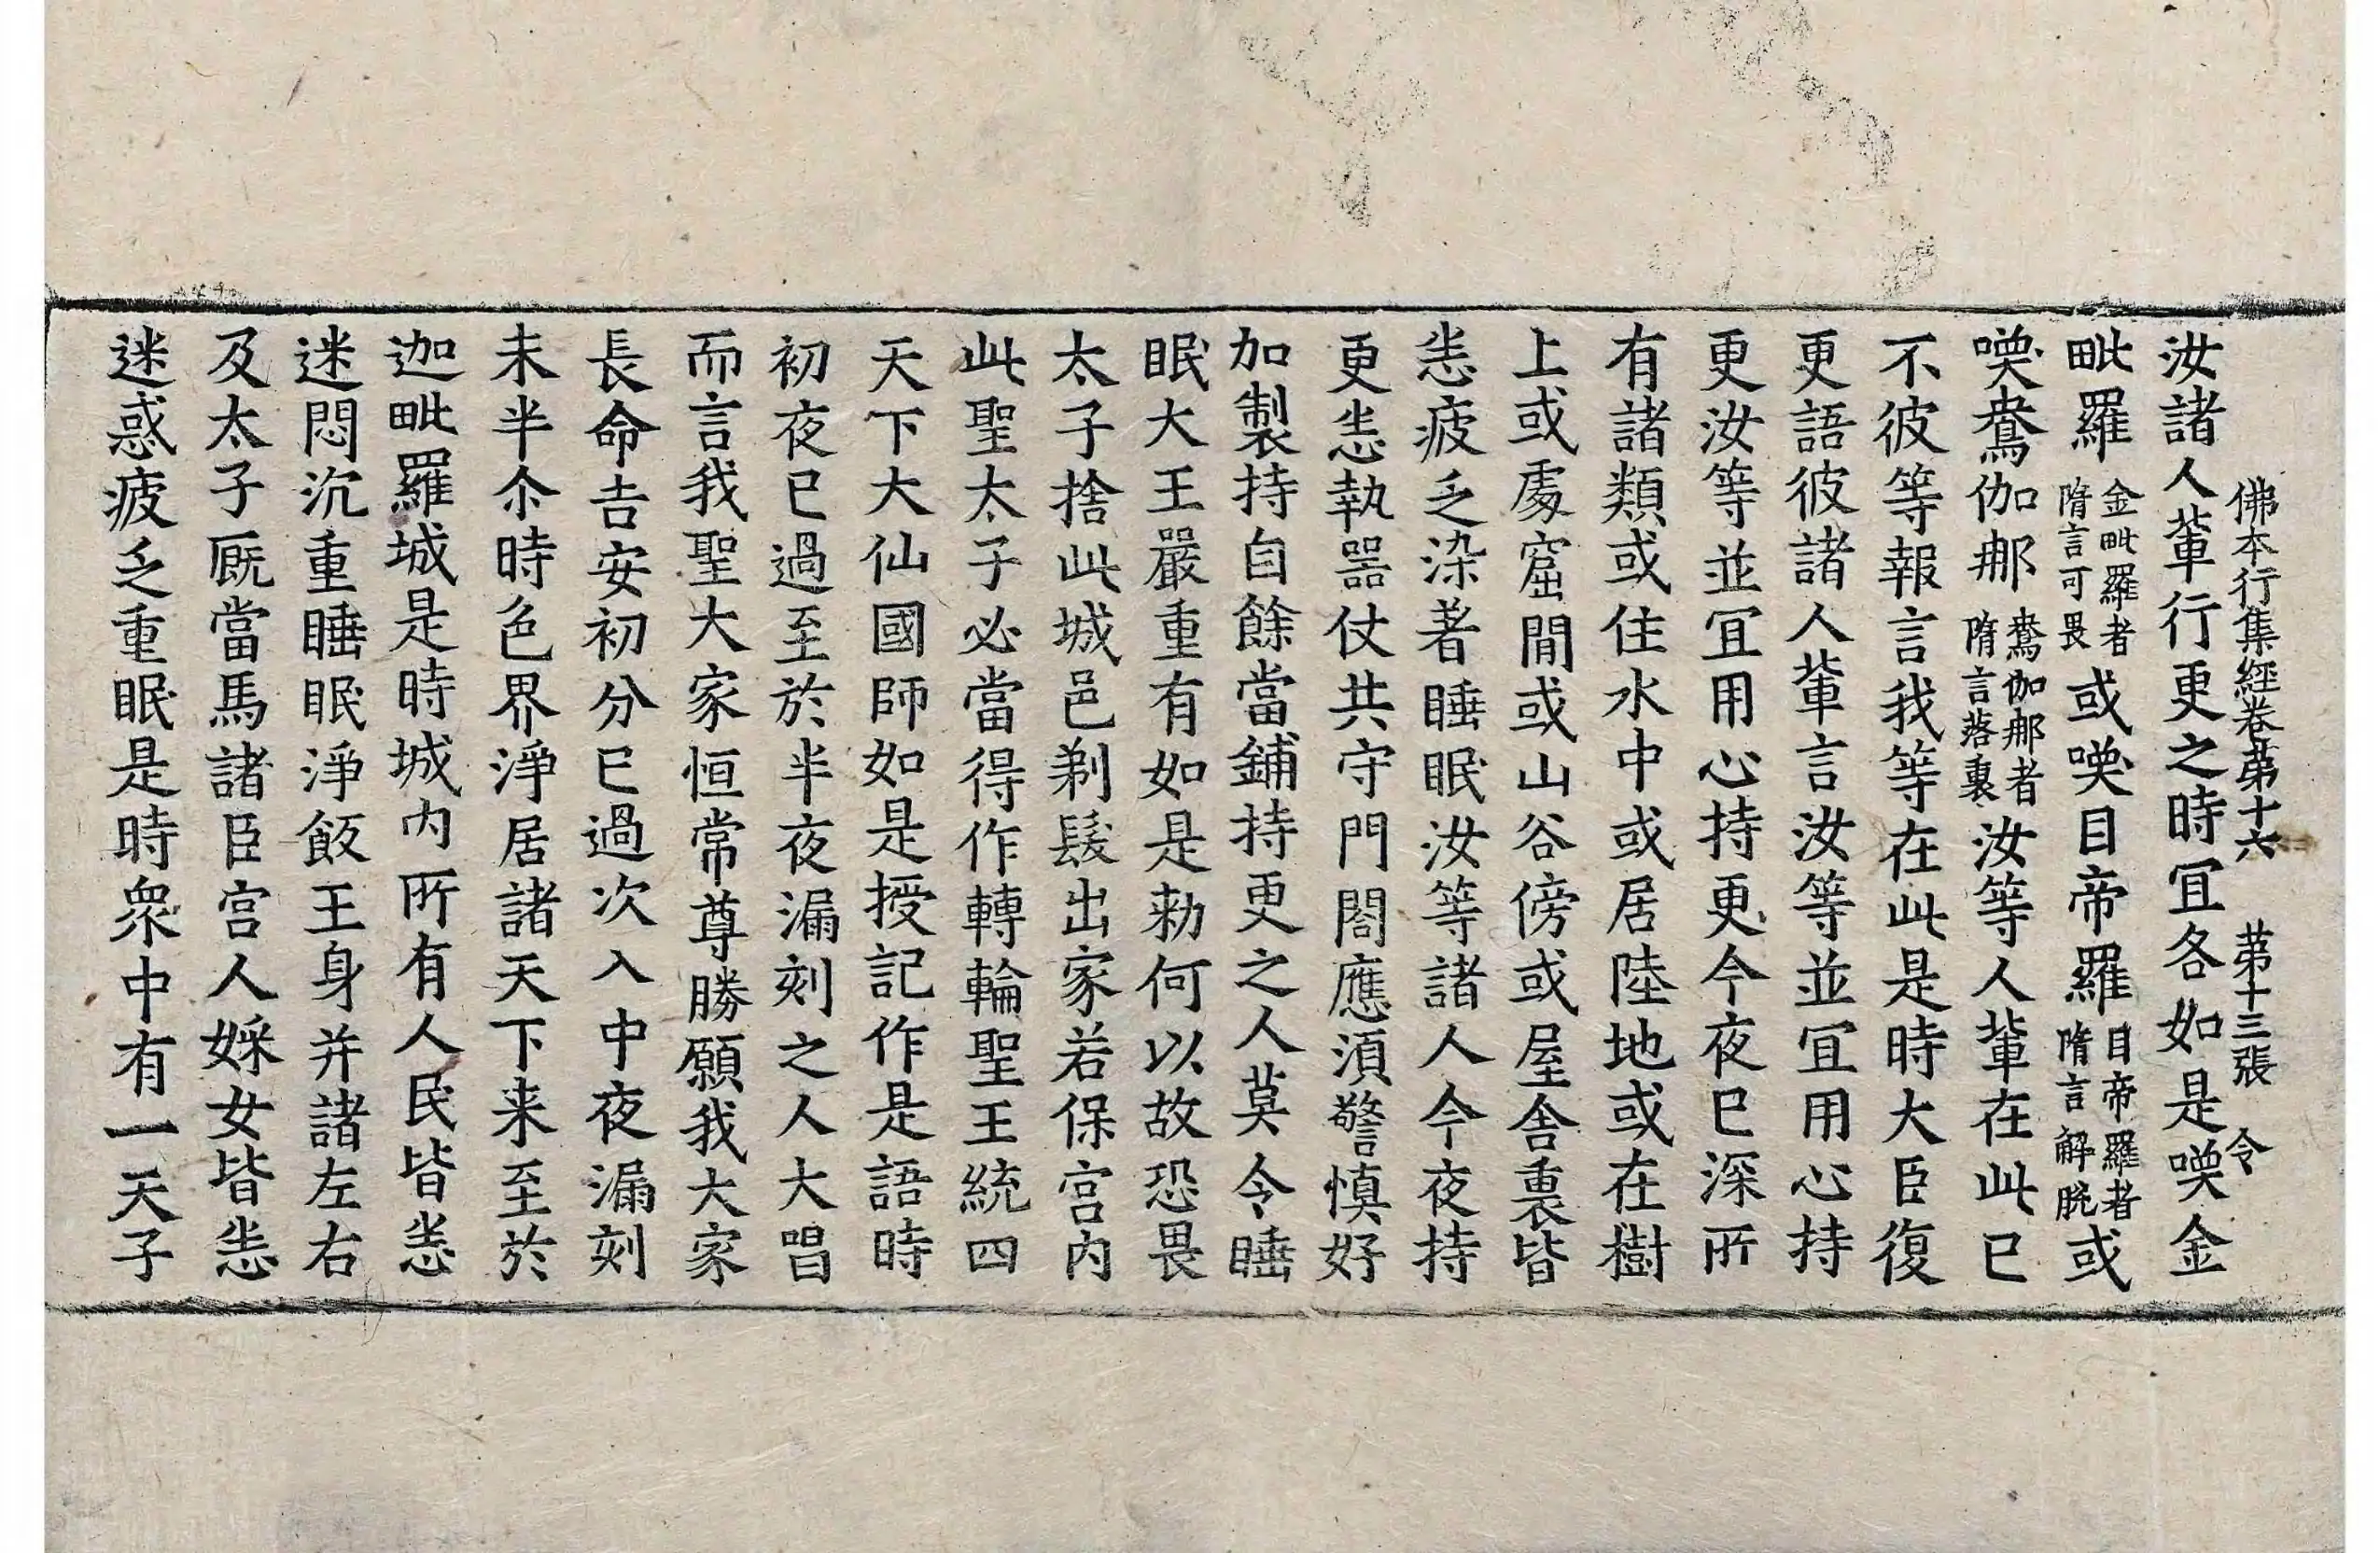 佛本行集經卷苐十六　苐十三張　令
汝諸人輩行更之時冝各如是喚金
毗羅金毗羅者隋言可畏或喚目帝羅目帝羅者隋言解脫或
喚鴦伽那鴦伽那者隋言落裏汝等人輩在此已
不彼等報言我等在此是時大臣復
更語彼諸人輩言汝等並冝用心持
更汝等並冝用心持更今夜已深所
有諸類或住水中或居陸地或在樹
上或處窟間或山谷傍或屋舍裏皆
悉疲乏染著睡眠汝等諸人今夜持
更悉執器仗共守門閤應須警慎好
加製持自餘當鋪持更之人莫令睡
眠大王嚴重有如是勑何以故恐畏
太子捨此城邑剃髮出家若保宮內
此聖太子必當得作轉輪聖王統四
天下大仙國師如是授記作是語時
初夜已過至於半夜漏刻之人大唱
而言我聖大家恒常尊勝願我大家
長命吉安初分已過次入中夜漏刻
未半尒時色界淨居諸天下来至於
迦毗羅城是時城內所有人民皆悉
迷悶沉重睡眠淨飯王身并諸左右
及太子厩當馬諸臣宮人婇女皆悉
迷惑疲乏重眠是時衆中有一天子